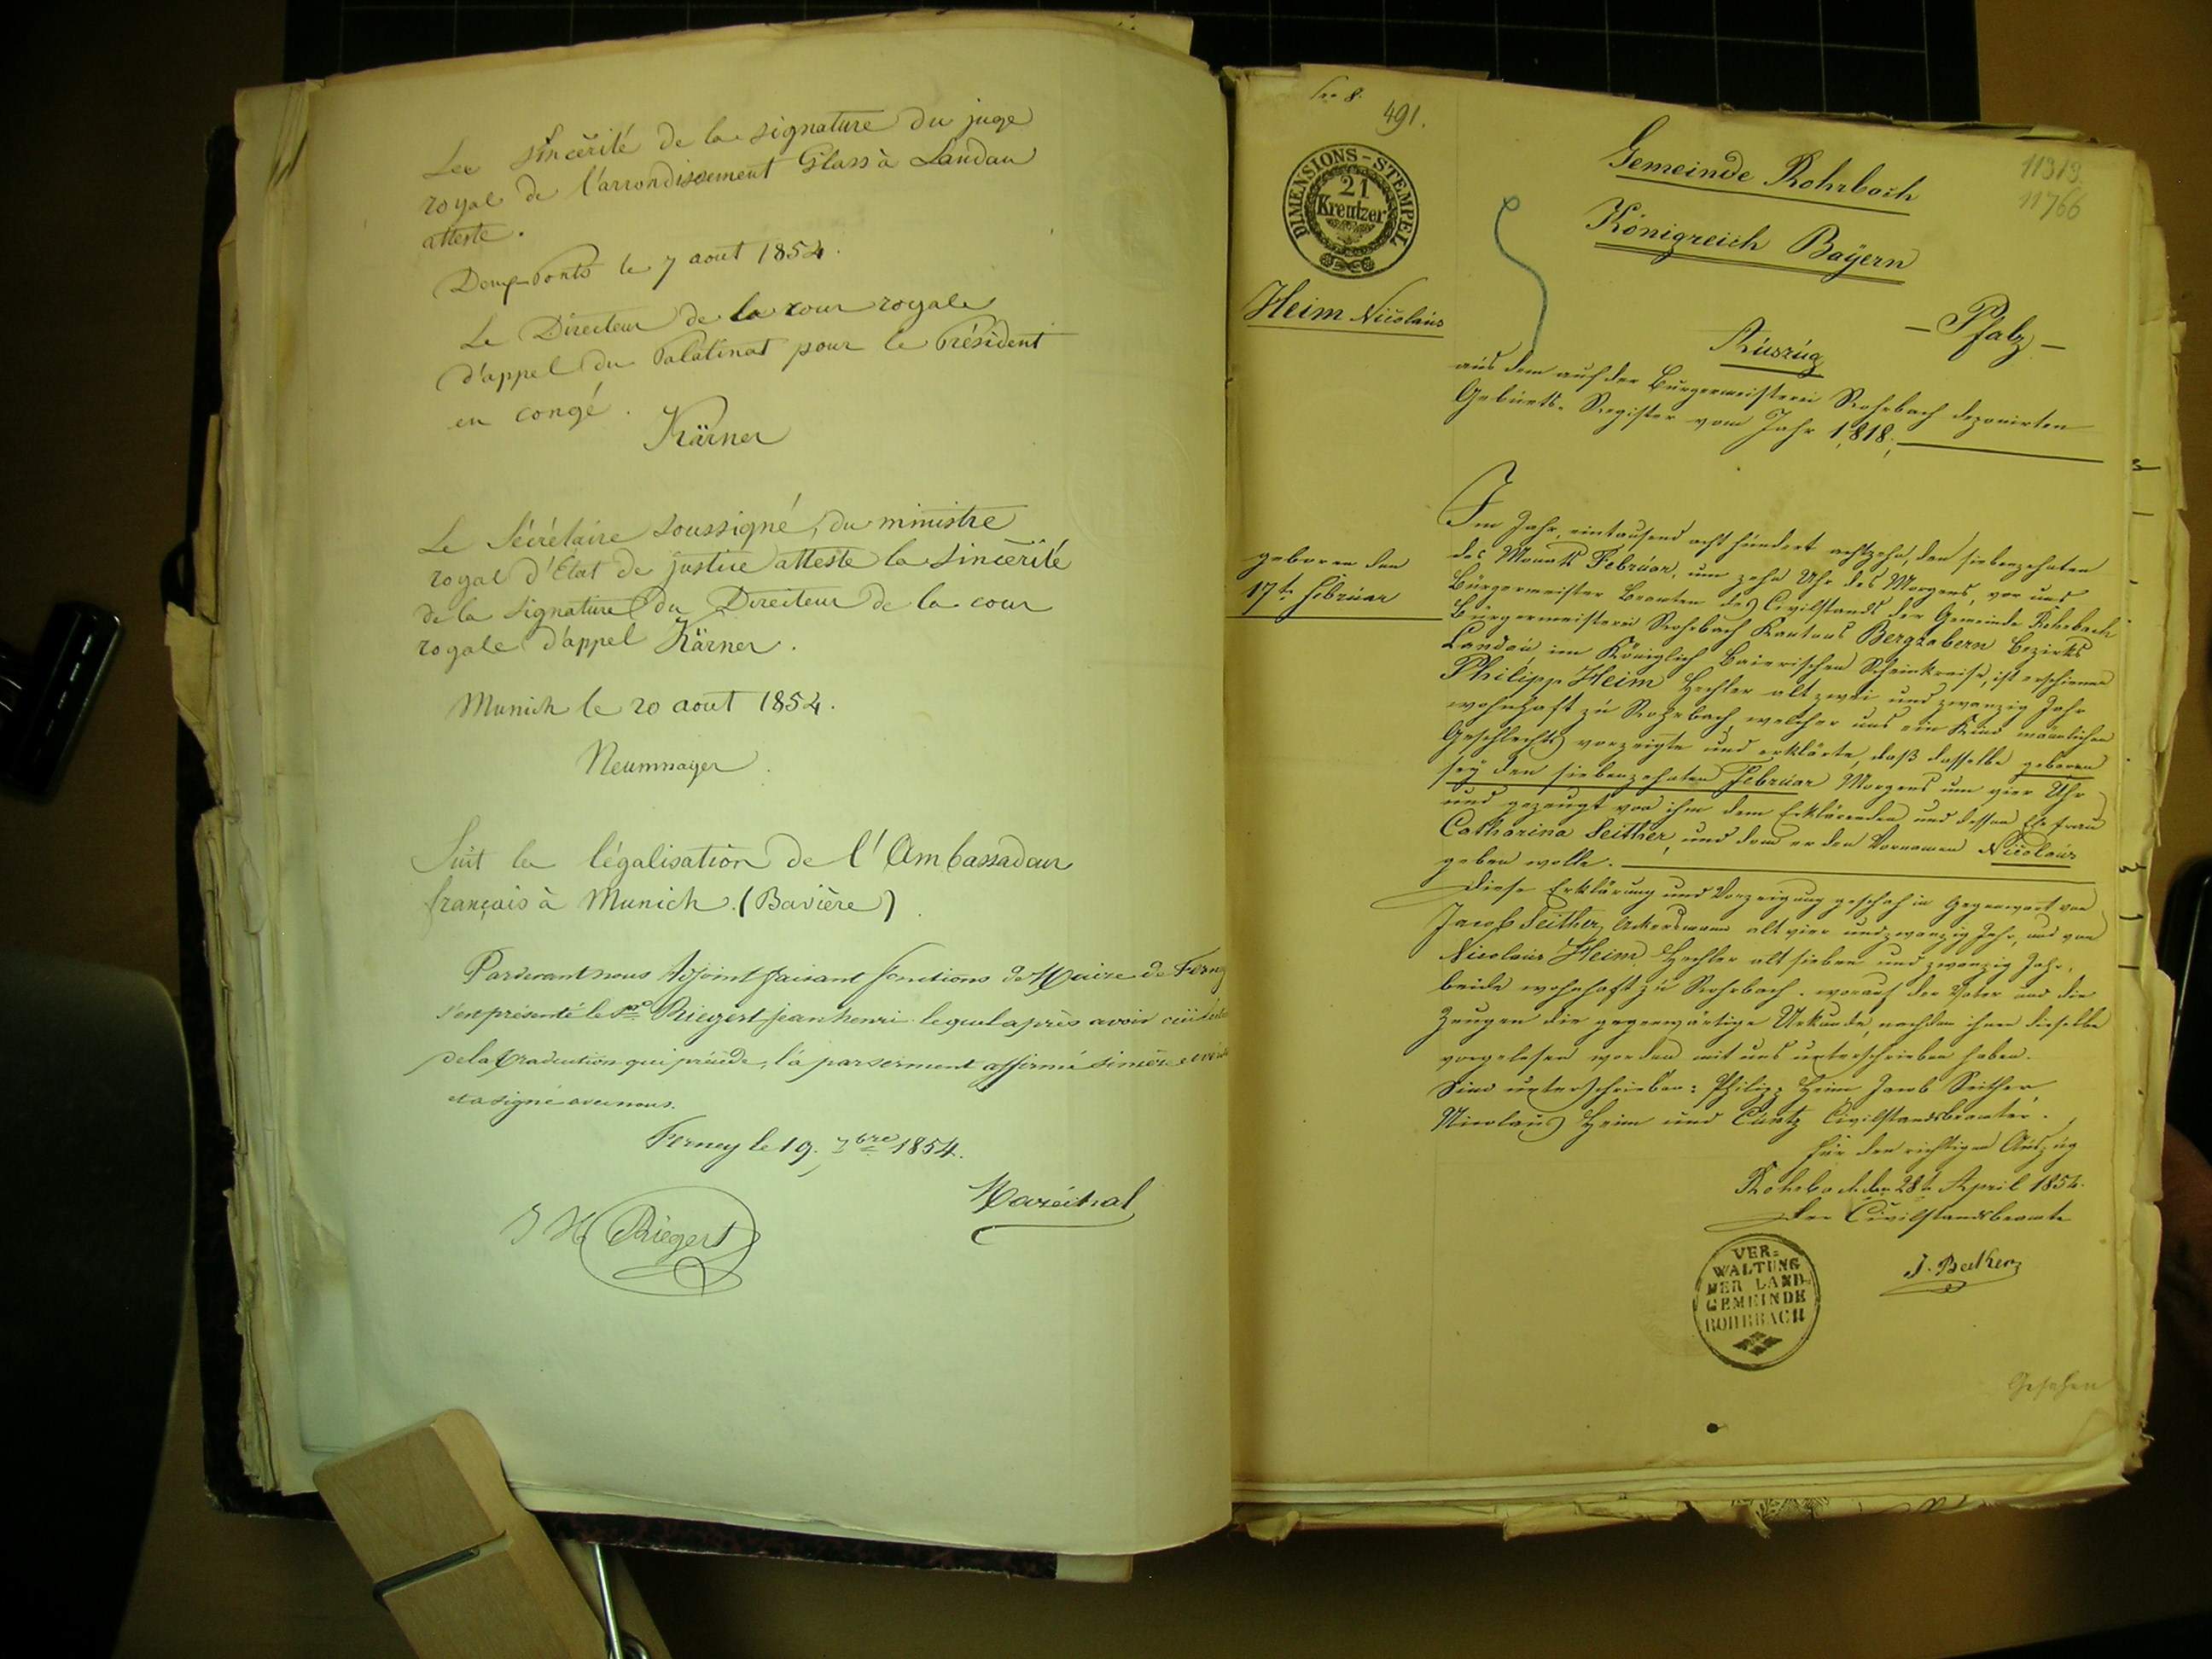 La sincérité de la signature du juge
royal de l'arrondissement Glass à Landau
atteste.
Deux-Ponts le 7 aout 1854.
Le Directeur de la cour royale
d'appel du Palatinat pour le Président
en congé.
Kärner
Le Sécrétaire soussigné, du ministre
royal d'État de justice atteste la sincérité
de la signature du Directeur de la cour
royale d'appel Kärner.
Munich le 20 aout 1854.
Neumayer
Suit la légalisation de l'Ambassadeur
français à Munich. (Bavière)
Pardevant nous Adjoint faisant fonctions de Maire de Ferney
s'en présenté le Sr Riegert jean henri lequel après avoir
de la traduction qui précède, l'a par serment affirmé sincère
et a signé avec nous.
Ferney le 19. 7bre 1854.
Maréchal
J H Riegert
491.
DIMENSIONS-STEMPEL
21
Kreutzer
Heim Nicolaus
geboren den
17te Februar
11319
11766
Gemeinde Rohrbach
Königreich Bayern
- Pfalz -
Auszug
aus dem auf der Bürgermeisterei Rohrbach deponirten
Geburts-Register vom Jahr 1818,
Im Jahr, eintausend acht hundert achtzehn, den siebenzehnten
des Monats Februar, um zehn Uhr des Morgens, vor uns
Bürgermeister Beamten des Civilstands der Gemeinde Rohrbach
Bürgermeisterei Rohrbach Kantons Bergzabern Bezirks
Landau im Königlich Baierischen Rheinkreise, ist erschienen
Philipp Heim Hechler alt zwei und zwanzig Jahr
wohnhaft zu Rohrbach, welcher uns ein Kind männlichen
Geschlechts vorzeigte und erklärte, daß dasselbe geboren
sey den siebenzehnten Februar Morgens um vier Uhr
und gezeugt von ihm dem Erklärenden und dessen Ehefrau
Catharina Seither, und dem er den Vornamen Nicolaus
geben wolle.
Diese Erklärung und Vorzeigung geschah in Gegenwart von
Jacob Seither Ackersmann alt vier und zwanzig Jahr, und von
Nicolaus Heim Hechler alt sieben und zwanzig Jahr,
beide wohnhaft zu Rohrbach. worauf der Vater und die
Zeugen die gegenwärtige Urkunde, nachdem ihnen dieselbe
vorgelesen worden mit uns unterschrieben haben.
Sind unterschrieben: Philipp Heim Jacob Seither
Nicolaus Heim und Cuntz Civilstandsbeamter.
Für den richtigen Auszug
Rohrbach den 28te April 1854.
Der Civilstandsbeamte
VER=
WALTUNG
DER LAND=
GEMEINDE
ROHRBACH
J. Becker
Gesehen